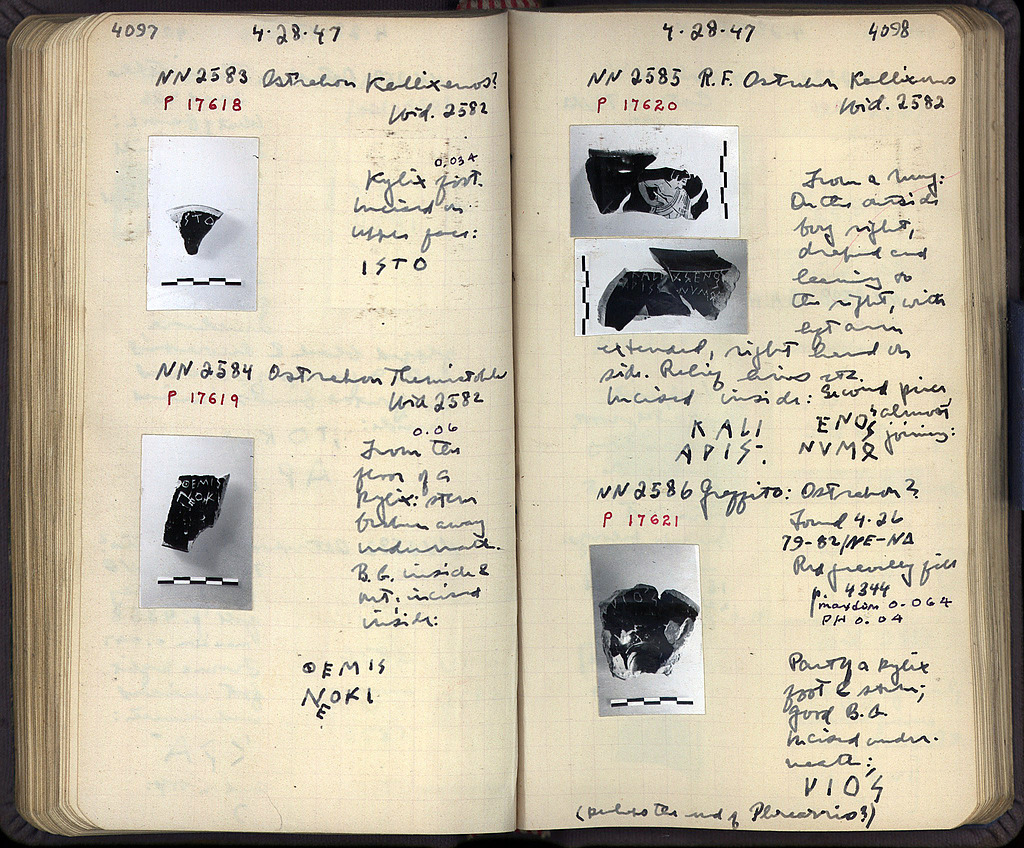 4097 4-28-47
NN 2583 Ostrakon Kallixenos?
P 17618 Ibid. 2582
0.034
Kylix foot.
Incised on
upper face:
ISTO
STO
NN 2584 Ostrakon Themistokles
P 17619 Ibid 2582
0.06
From the
floor of a
kylix: stem
broken away
underneath.
B.G. inside &
out. incised
inside:
ΘEMIS
NOKI
ΘEMIS
NOKI
E
4-28-47 4098
NN 2585 R.F. Ostrakon Kallixenos
P 17620 Ibid. 2582
From a
On the outside
boy right,
draped and
leaning to
the right, with
left arm
extended, right hand on
side. Relief lines etc.
Incised inside: Second piece
almost
joining:
KALI ENOS
APIS. NVMO
NN 2586 Graffito: Ostrakon?
P 17621 Found 4-26
79-82/NE-NA
Red gravelly fill
p. 4344
max dim 0.064
PH 0.04
Part of a kylix
foot & stem;
good B.G.
Incised under-
neath:
VIOS
(perhaps the end of Phrearrios?)